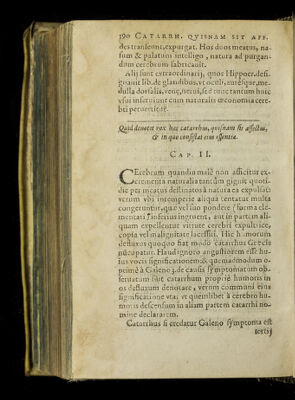 390 CATARRH. QVISNAM SIT AFF.
des transeunt, expurgat. Hos duos meatus, na-
sum & palatum intelligo, natura ad purgan-
dum cerebrum fabricauit.
Alij sunt extraordinarij, quos Hippocr. desi-
gnauit lib. de glandibus, vt oculi, aurésque, me-
dulla dorsalis, venæ, nerui, sed tunc tantum huic
vsui inseruiunt cum naturalis œconomia cere-
bri peruertitur.
Quid denotet vox hæc catarrhus, quisnam sit affectus,
& in quo consistat eius essentia.
CAP. II.
CErebrum quandiu malè non afficitur ex-
crementa naturalia tantùm gignit quoti-
die per meatus destinatos à natura ea expulsat:
verum vbi intemperie aliqua tentatur multa
congeruntur, quæ vel suo pondere
inferius ingruent, aut in partem ali-
quam expelluntur virtute cerebri expultrice,
copia vel malignitate lacessiti. Hic humorum
defluxus quoquo fiat modo catarrhus Græcis
nũcupatur. Haud ignoro angustiorem esse hu-
ius vocis significationem: & quemadmodum o-
ptimè à Galeno 3. de causis symptomatum ob-
seruatum sit catarrhum propriè humoris in
os defluxum denotare, verùm communi eius
significatione vtar, vt quemlibet à cerebro hu-
moris descensum in aliam partem catarrhi no-
mine declararem.
Catarrhus si credatur Galeno symptoma est
tertij